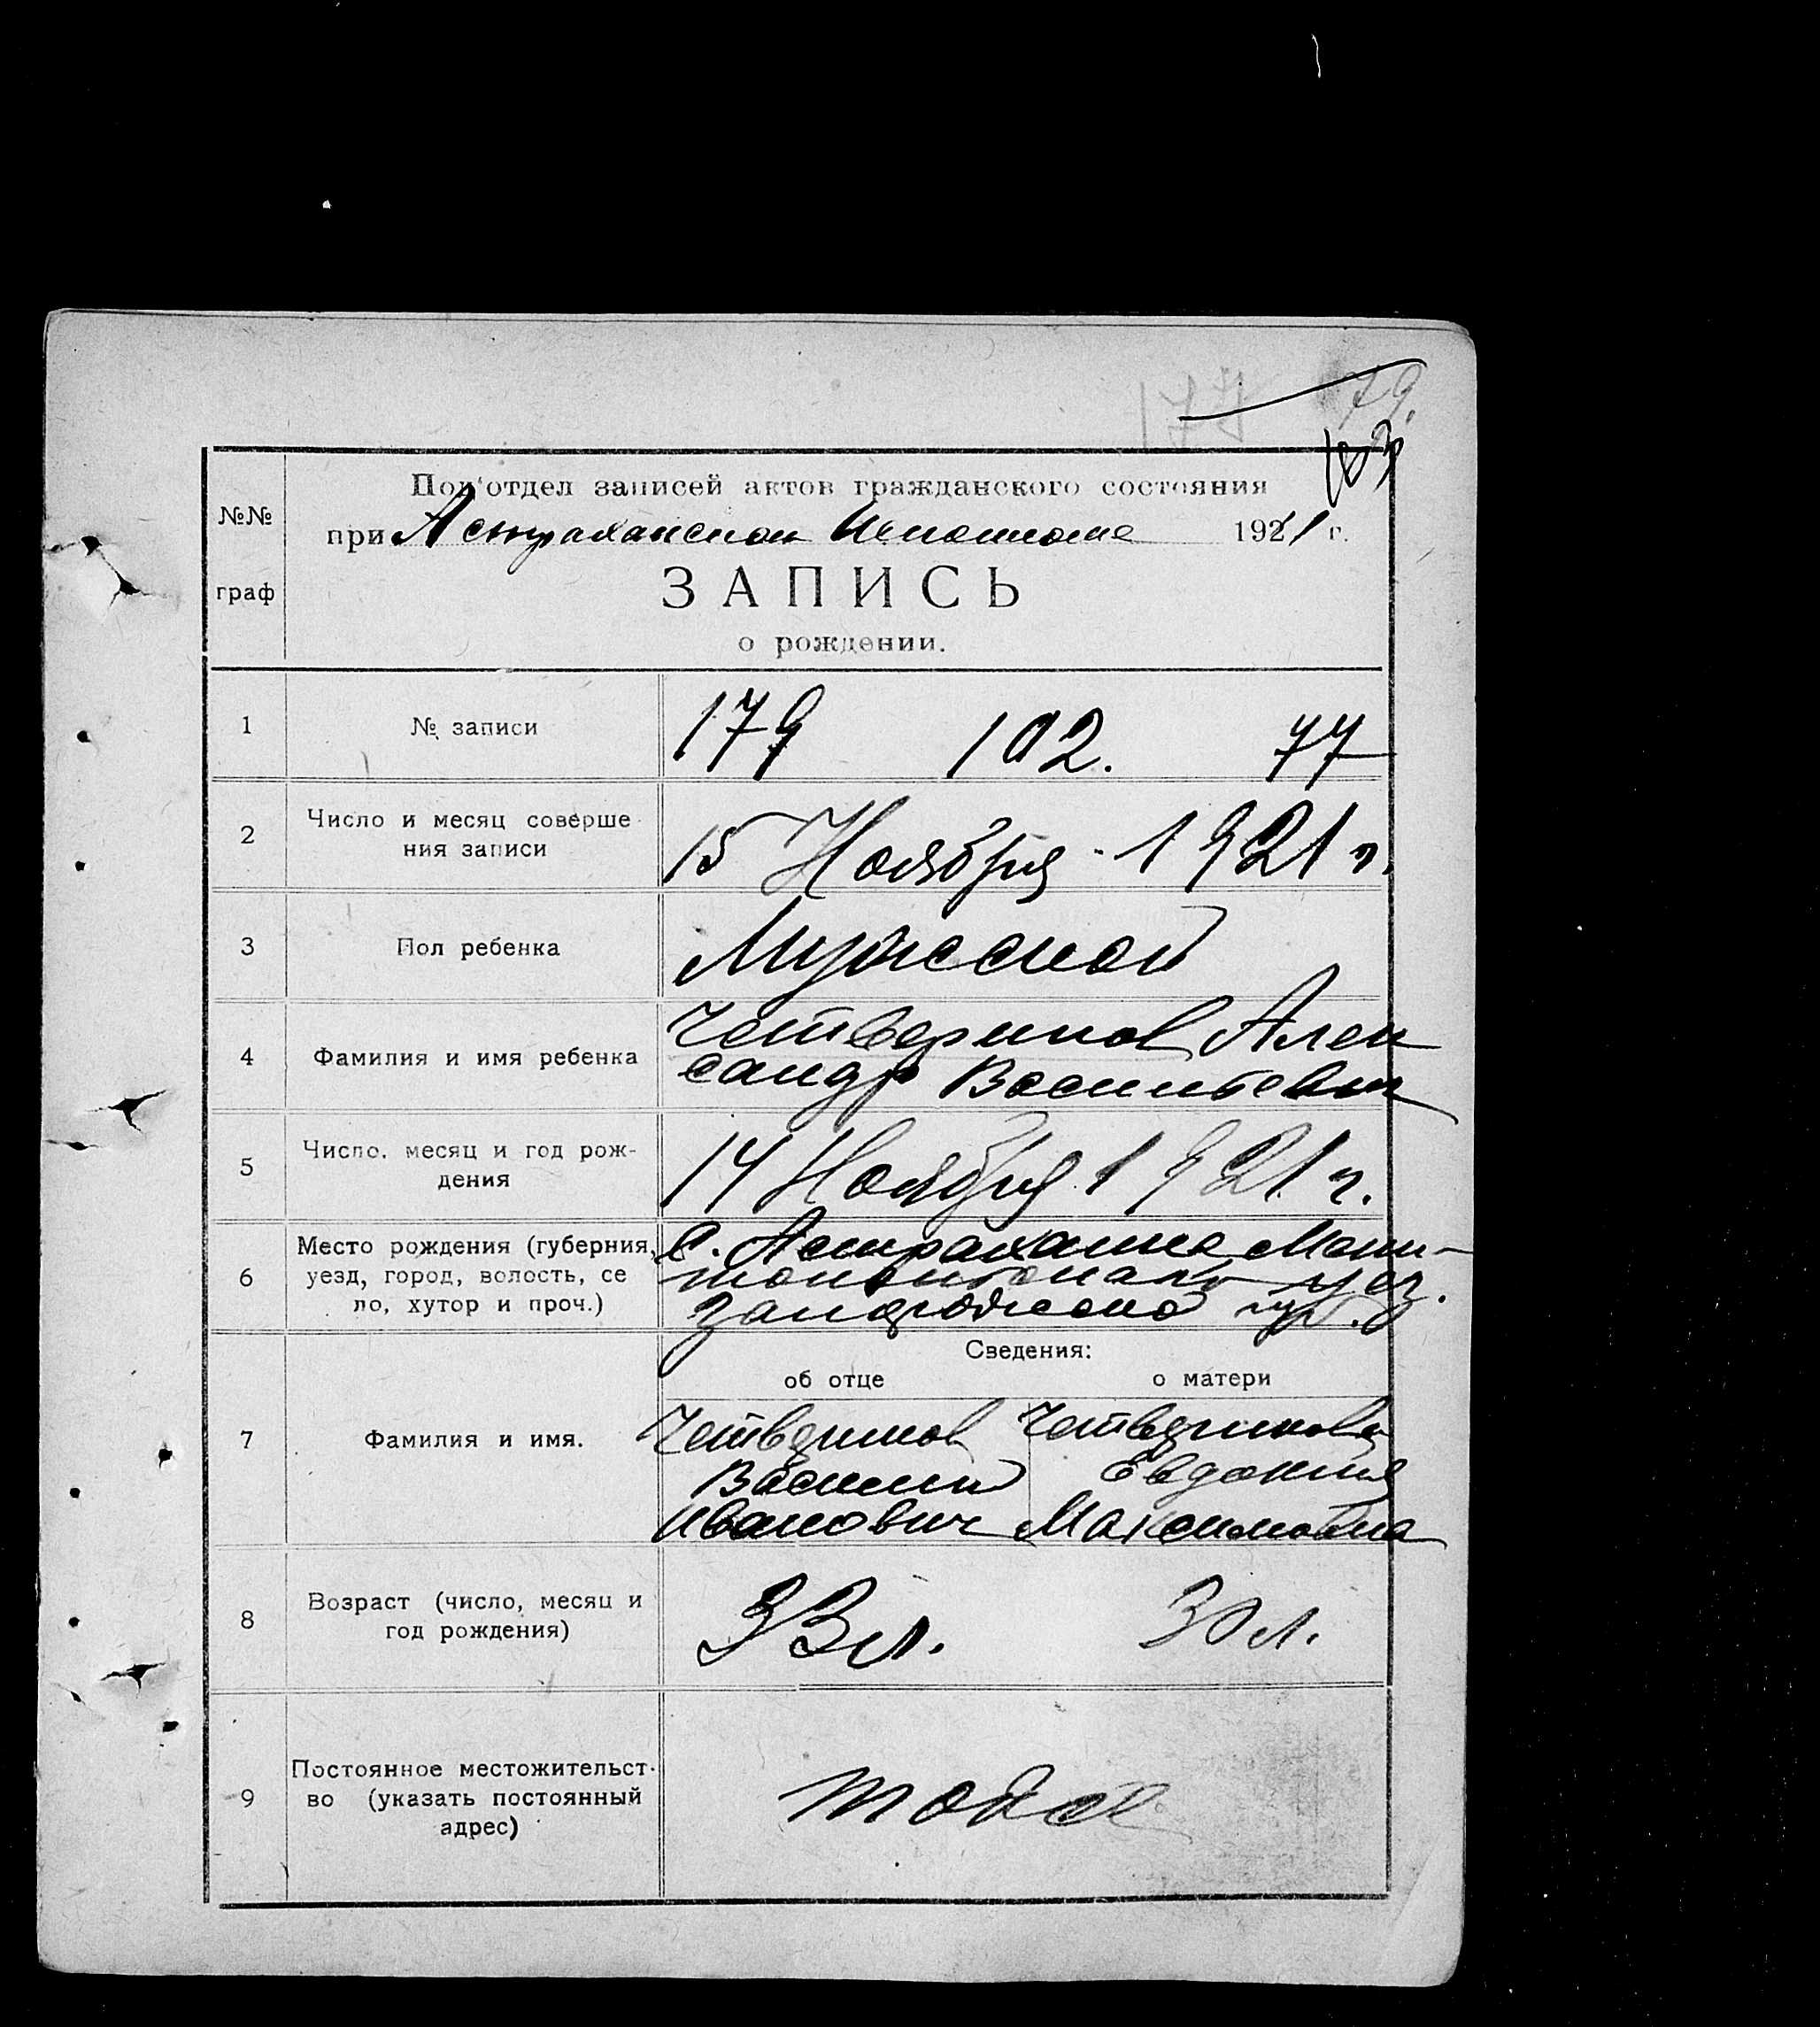 177 79.
103
№№
граф
Под'отдел записей актов гражданского состояния
при Астраханском Исполкоме 1921 г.
ЗАПИСЬ
о рождении.
1 № записи 179 102. 77
2 Число и месяц соверше
ния записи 15 Ноября - 1921 г.
3 Пол ребенка Мужеской
4 Фамилия и имя ребенка Четвериков Алек
сандр Васильевич
5 Число. месяц и год рож-
дения 14 Ноября 1921 г.
6 Место рождения (губерния, с. Астраханка Мели-
уезд, город, волость, се топольского уез.
ло, хутор и проч.) Запорожской губ.
Сведения:
об отце о матери
7 Фамилия и имя. Четвериков Четверикова
Василий Евдокия
Иванович Максимовна
8 Возраст (число, месяц и
год рождения) 33 л. 30 л.
9 Постоянное местожительст-
во (указать постоянный
адрес)